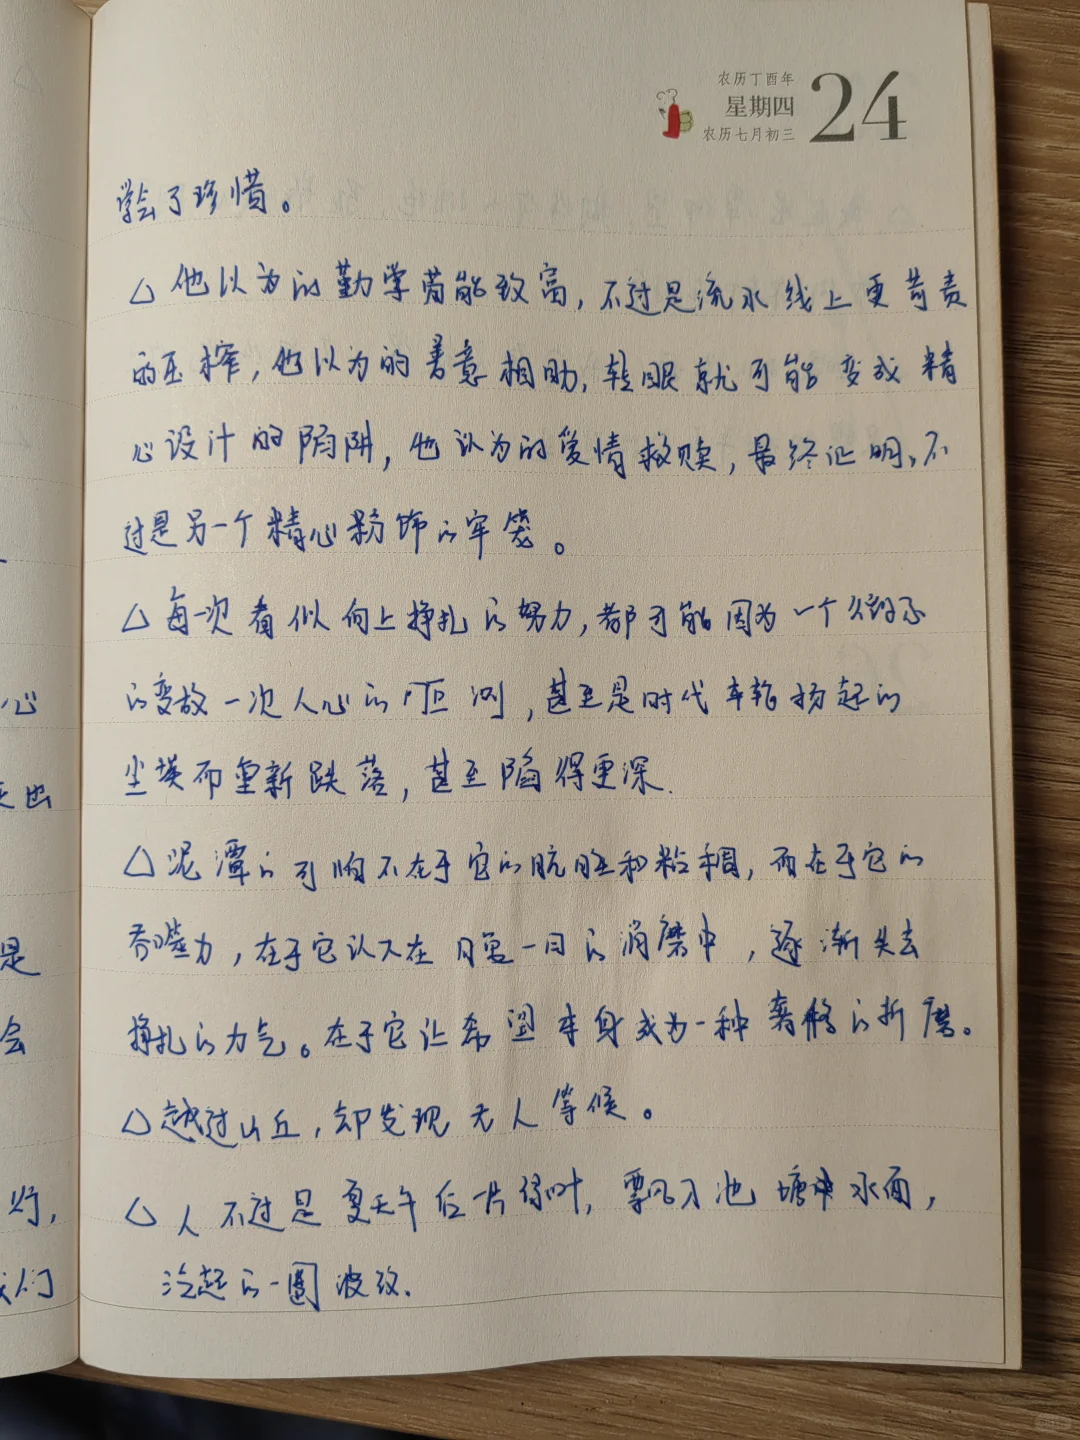 农历丁酉年
星期四
农历七月初三
24
学会了珍惜。
△ 他以为的勤学苦能致富,不过是流水线上更苛责
的压榨,他以为的善意相助,转眼就可能变成精
心设计的陷阱,他认为的爱情救赎,最终证明,不
过是另一个精心粉饰的牢笼。
△ 每一次看似向上挣扎的努力,都可能因为一个微不
的变故一次人心的叵测,甚至是时代车轮扬起的
尘埃而重新跌落,甚至陷得更深.
△ 泥潭的可怕不在于它的肮脏和粘稠,而在于它的
吞噬力,在于它让人在日复一日的消磨中,逐渐失去
挣扎的力气。在于它让希望本身成为一种奢侈的折磨。
△ 越过山丘,却发现无人等候。
△ 人不过是夏天午后一片绿叶,飘风入池塘中水面,
泛起的一圈波纹.
心
出
是
会
灯,
我们